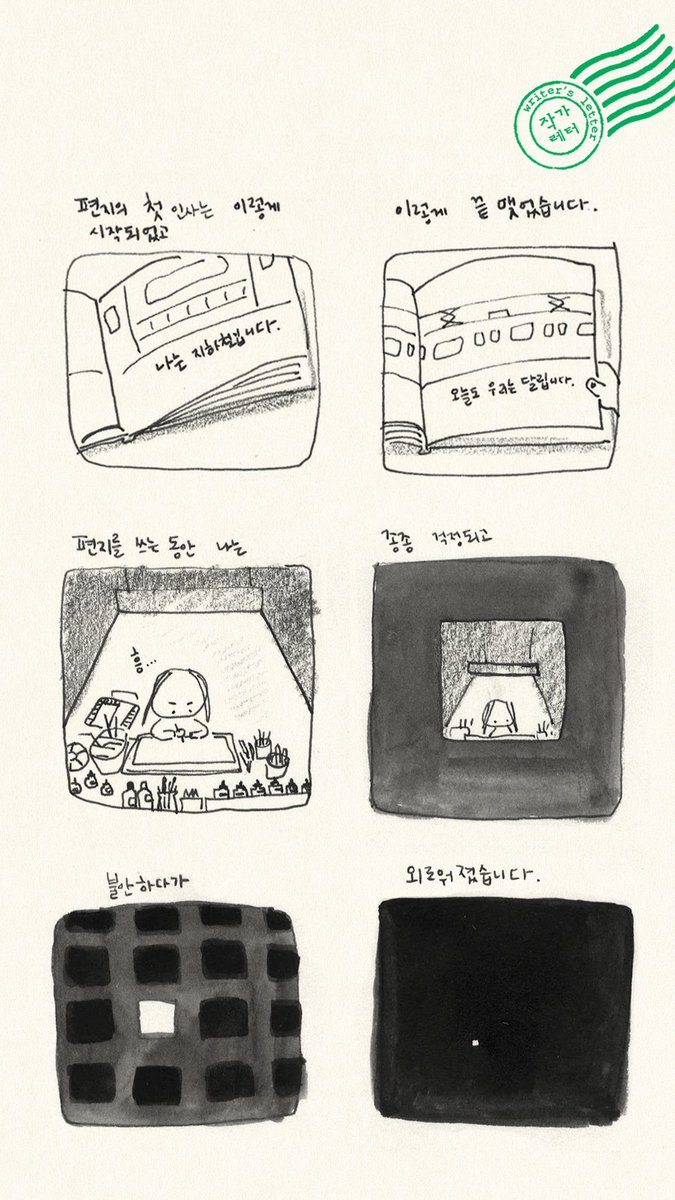 writer's letter
작가
레터
편지의 첫 인사는 이렇게
시작되었고
이렇게 끝 맺었습니다.
나는 지하철입니다.
오늘도 우리는 달립니다.
편지를 쓰는 동안 나는
흐음...
종종 걱정되고
불안하다가
외로워졌습니다.